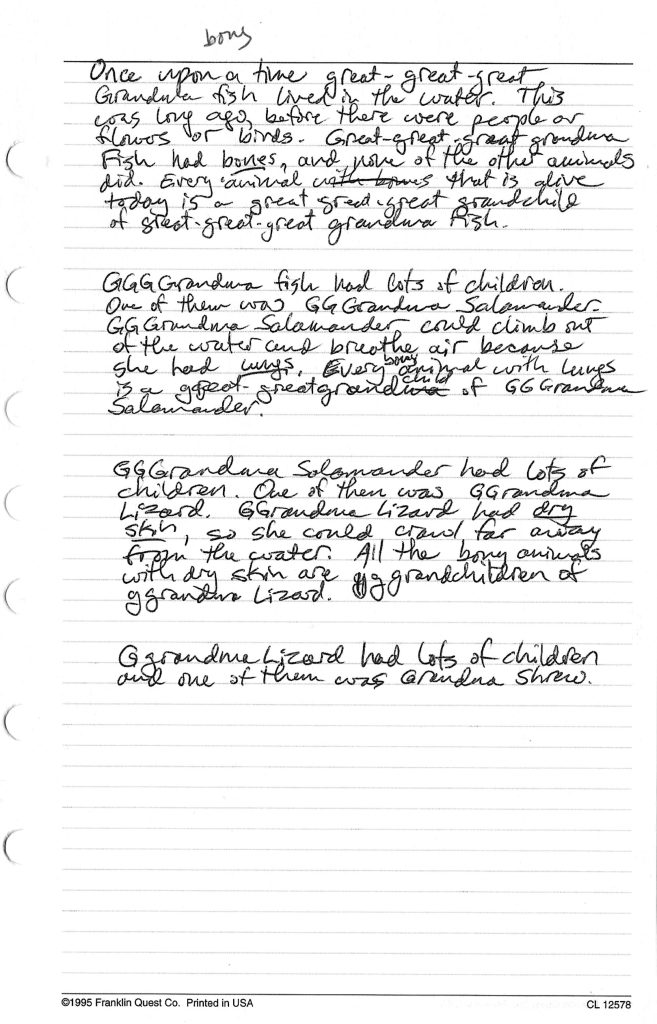 bony
Once upon a time great-great-great
Grandma fish lived in the water. This
was long ago, before there were people or
flowers or birds. Great-great-great grandma
Fish had bones, and none of the other animals
did. Every animal with bones that is alive
today is a great great-great grandchild
of great-great-great grandma Fish.
GGGGrandma fish had lots of children.
One of them was GGGrandma Salamander.
GGGrandma Salamander could climb out
of the water and breathe air because
she had lungs. Every bony animal with lungs
is a great-great grandchild of GGGrandma
Salamander.
GGGrandma Salamander had lots of
children. One of them was GGrandma
Lizard. GGrandma Lizard had dry
skin, so she could crawl far away
from the water. All the bony animals
with dry skin are gggrandchildren of
ggrandma Lizard.
Ggrandma Lizard had lots of children
and one of them was Grandma Shrew.
©1995 Franklin Quest Co. Printed in USA
CL 12578